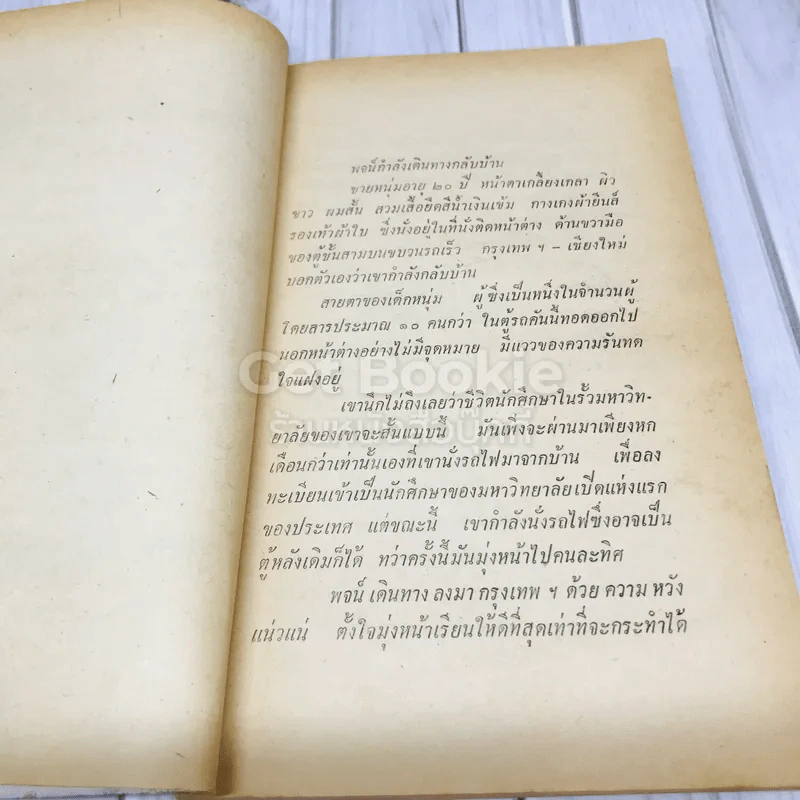 พจน์กำลังเดินทางกลับบ้าน
ชายหนุ่มอายุ ๒๐ ปี หน้าตาเกลี้ยงเกลา ผิว
ขาว ผมสั้น สวมเสื้อยืดสีน้ำเงินเข้ม กางเกงผ้ายีนส์
รองเท้าผ้าใบ ซึ่งนั่งอยู่ในที่นั่งติดหน้าต่าง ด้านขวามือ
ของตู้ชั้นสามบนขบวนรถเร็ว กรุงเทพ ฯ – เชียงใหม่
บอกตัวเองว่าเขากำลังกลับบ้าน
สายตาของเด็กหนุ่ม ผู้ซึ่งเป็นหนึ่งในจำนวนผู้
โดยสารประมาณ ๑๐ คนกว่า ในตู้รถคันนี้ทอดออกไป
นอกหน้าต่างอย่างไม่มีจุดหมาย มีแววของความรันทด
ใจแฝงอยู่
Get Bookie
เขานึกไม่ถึงเลยว่าชีวิตนักศึกษาในรั้วมหาวิท-
ยาลัยของเขาจะสั้นแบบนี้ มันเพิ่งจะผ่านมาเพียงหก
เดือนกว่าเท่านั้นเองที่เขานั่งรถไฟมาจากบ้าน เพื่อลง
ทะเบียนเข้าเป็นนักศึกษาของมหาวิทยาลัยเปิดแห่งแรก
ของประเทศ แต่ขณะนี้ เขากำลังนั่งรถไฟซึ่งอาจเป็น
ตู้หลังเดิมก็ได้ ทว่าครั้งนี้มันมุ่งหน้าไปคนละทิศ
พจน์ เดินทาง ลงมา กรุงเทพ ฯ ด้วย ความ หวัง
แน่วแน่ ตั้งใจมุ่งหน้าเรียนให้ดีที่สุดเท่าที่จะกระทำได้